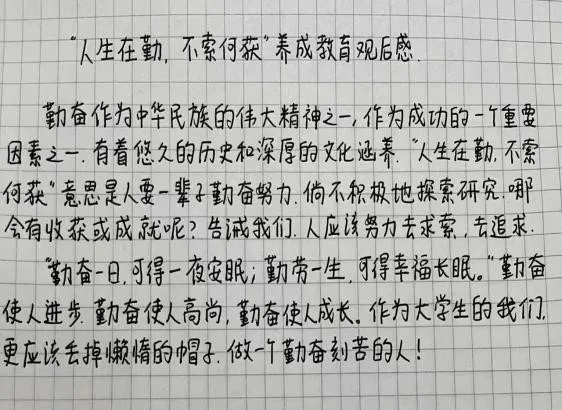 "人生在勤,不索何获"养成教育观后感.
勤奋作为中华民族的伟大精神之一,作为成功的一个重要
因素之一.有着悠久的历史和深厚的文化涵养."人生在勤,不索
何获"意思是人要一辈子勤奋努力.倘不积极地探索研究.哪
会有收获或成就呢?告诫我们.人应该努力去求索,去追求.
"勤奋一日,可得一夜安眠;勤劳一生,可得幸福长眠。"勤奋
使人进步.勤奋使人高尚,勤奋使人成长。作为大学生的我们.
更应该丢掉懒惰的帽子.做一个勤奋刻苦的人!